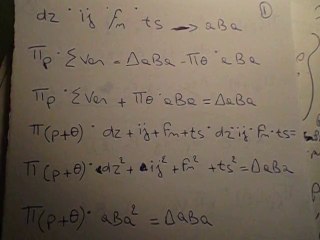 ①
dz · ij · fm · ts → aBa
πp · Σven = ΔaBa - πθ · aBa
πp · Σven + πθ · aBa = ΔaBa
π(p+θ) · dz + ij + fm + ts · dz · ij · fm · ts =
π(p+θ) · dz² + ij² + fm² + ts² = ΔaBa
π(p+θ) · aBa² = ΔaBa